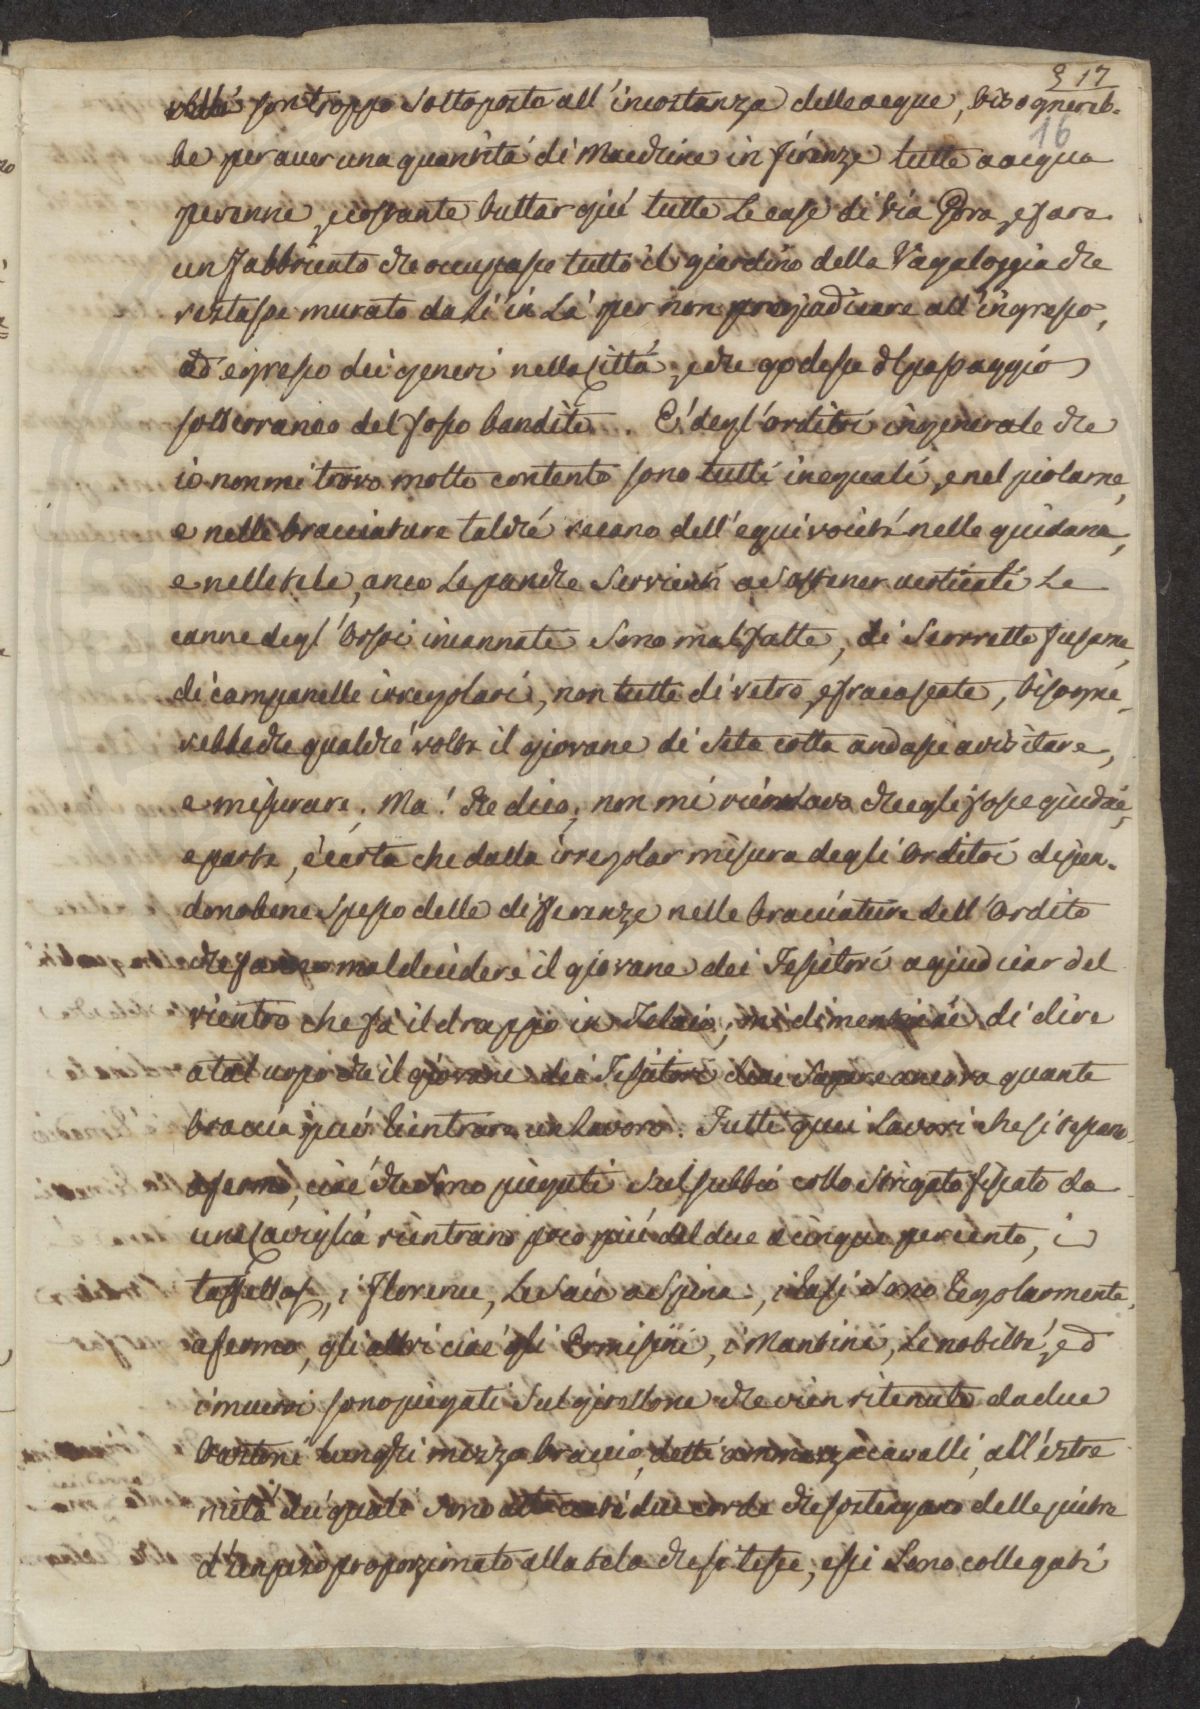 § 17
16
volte son troppo sottoposte all'incostanza delle acque, bisognereb-
be per aver una quantità di Macchine in firenze tutte a acqua
perenne, e costante buttar giù tutte le case di Via Gora, e fare
un fabbricato che occupasse tutto il giardino della Vagaloggia che
restasse murato da lì in là per non pregiudicare all'ingresso,
ed egresso dei generi nella Città, e che godesse il passaggio
sotterraneo del fosso bandito. E' degl'orditoi in generale che
io non mi trovo molto contento sono tutti ineguali, e nel piolame,
e nelle bracciature talché recano dell'equivocità nelle guidane,
e nelle tele, anco le panche servienti a sostener verticali le
canne degl'Orsoi incannati sono mal fatte, di scorretto fusame,
di campanelle irregolari, non tutte di vetro, e fracassate, bisogne-
rebbe che qualche volta il giovane di Seta cotta andasse a visitare,
e misurare. Ma! che dico, non mi ricordavo che egli fosse giudice,
e parte, è certo che dalla irregolar misura degli Orditoi dipen-
dono bene spesso delle differenze nelle bracciature dell'Ordito
che fanno mal decidere il giovane dei Tessitori a giudicar del
rientro che fà il drappo in Telaio; mi dimenticai di dire
a tal uopo che il giovane dei Tessitori deve sapere ancora quante
braccia può rientrare un lavoro. Tutti quei lavori che si tessano
a fermo, cioè che sono piegati sul subbio collo strigato fissato da
una Caviglia rientrano poco più del due a cinque per cento, i
taffettas, i florence, le Saie a Spina, i Rasi sono regolarmente
a fermo, gli altri cioè gli Ermisini, i Mantini, le nobiltà, ed
i muerri sono piegati sul girellone che vien ritenuto da due
bastoni lunghi mezzo braccio, detti ammazzacavalli, all'estre
mità dei quali sono attaccati due corde che sostengano delle pietre
d'un peso proporzionato alla tela che si tesse, essi sono collegati